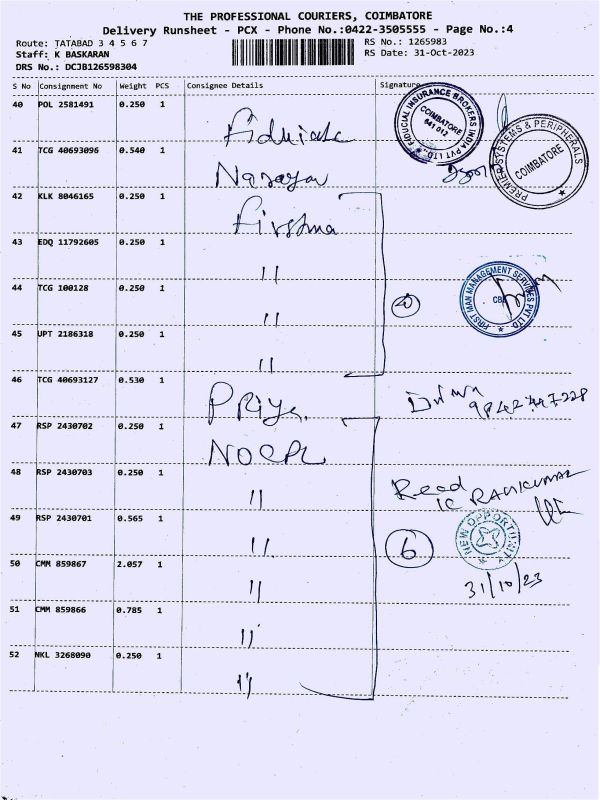 THE PROFESSIONAL COURIERS, COIMBATORE
Delivery Runsheet - PCX - Phone No.:0422-3505555 - Page No.:4
Route: TATABAD 3 4 5 6 7
RS No.: 1265983
Staff: K BASKARAN
RS Date: 31-Oct-2023
DRS No.: DCJB126598304
S No Consignment No Weight PCS Consignee Details Signature
40 POL 2581491 0.250 1
FIDUCIAL INSURANCE BROKERS INDIA PVT LTD.,
COIMBATORE
641 012
PREMIER SYSTEMS & PERIPHERALS
COIMBATORE
41 TCG 40693096 0.540 1 Narayan
42 KLK 8046165 0.250 1
43 EDQ 11792605 0.250 1 "
44 TCG 100128 0.250 1 "
FIRST MAN MANAGEMENT SERVICES PVT LTD
CBE
45 UPT 2186318 0.250 1 "
46 TCG 40693127 0.530 1 Priya
47 RSP 2430702 0.250 1 NOCPL
48 RSP 2430703 0.250 1 "
Recd
RAVIKUMAR
49 RSP 2430701 0.565 1 "
6
NEW OPPORTUNITY
50 CMM 859867 2.057 1 "
31/10/23
51 CMM 859866 0.785 1 "
52 NKL 3268090 0.250 1 "